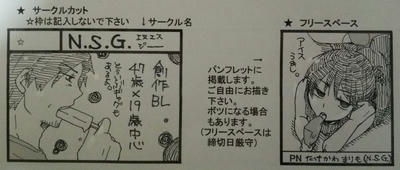 ★ サークルカット
☆枠は記入しないで下さい
↓サークル名
☆
N.S.G.
エヌエス
ジー
創作BL
47歳×19歳中心
パンフレットに
掲載します。
ご自由にお描き
下さい。
ボツになる場合
もあります。
(フリースペースは
締切日厳守)
★ フリースペース
アイス
うまし。
PN たけかわまりも(N.S.G.)